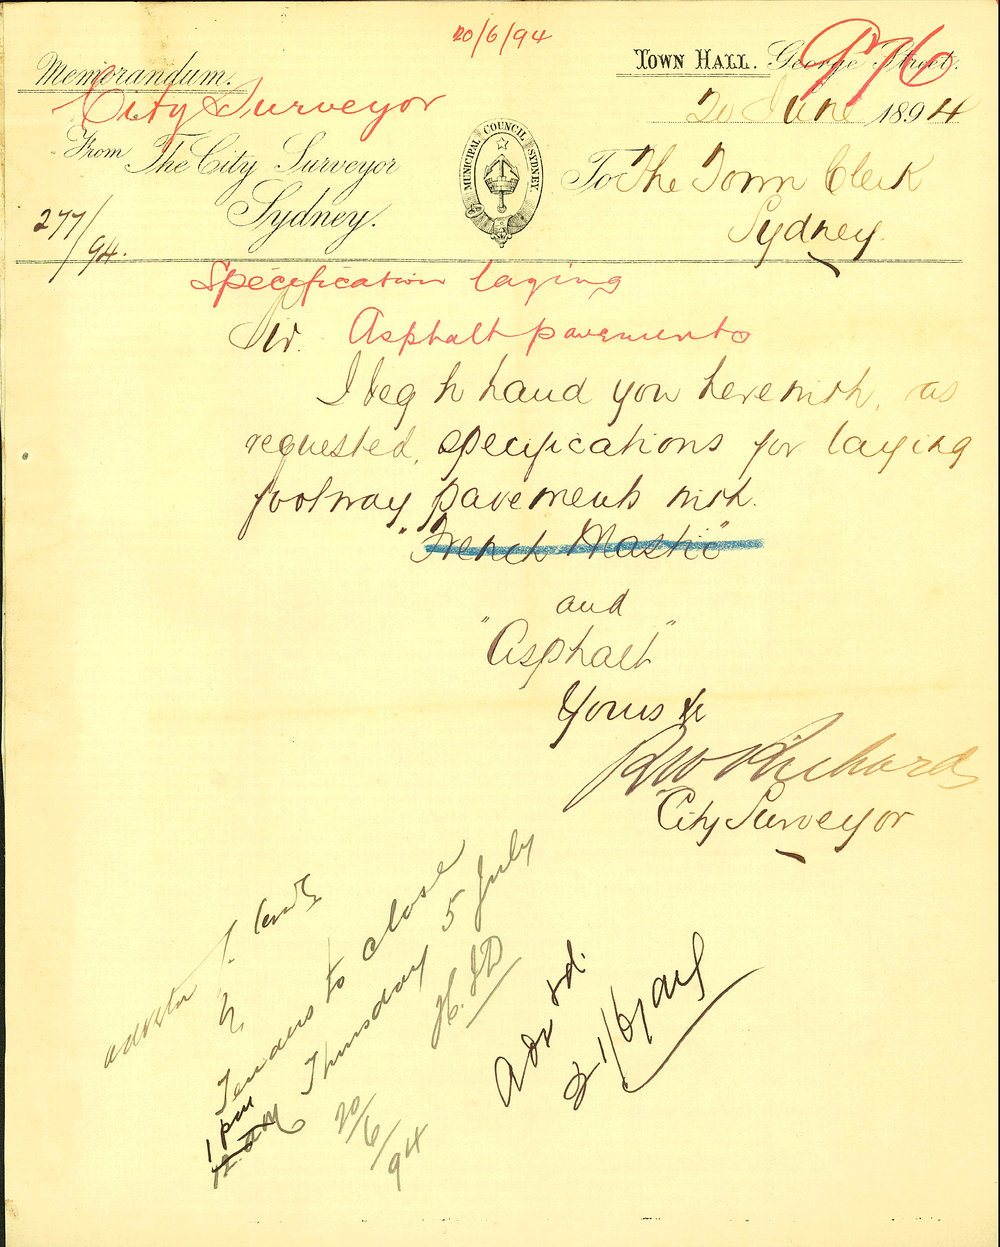 20/6/94
Memorandum.
Town Hall. George Street.
976
City Surveyor
20 June 1894
From The City Surveyor
Sydney.
MUNICIPAL COUNCIL SYDNEY.
To The Town Clerk
Sydney.
277/94.
Specification laying
Asphalt pavements
Sir.
I beg to hand you herewith, as
requested, specifications for laying
footway pavements with.
"French Mastic"
and
"Asphalt"
Yours &c
RW Richards
City Surveyor
Tenders to close
1 pm Thursday 5 July
20/6/94
Adv rd.
21/6/94